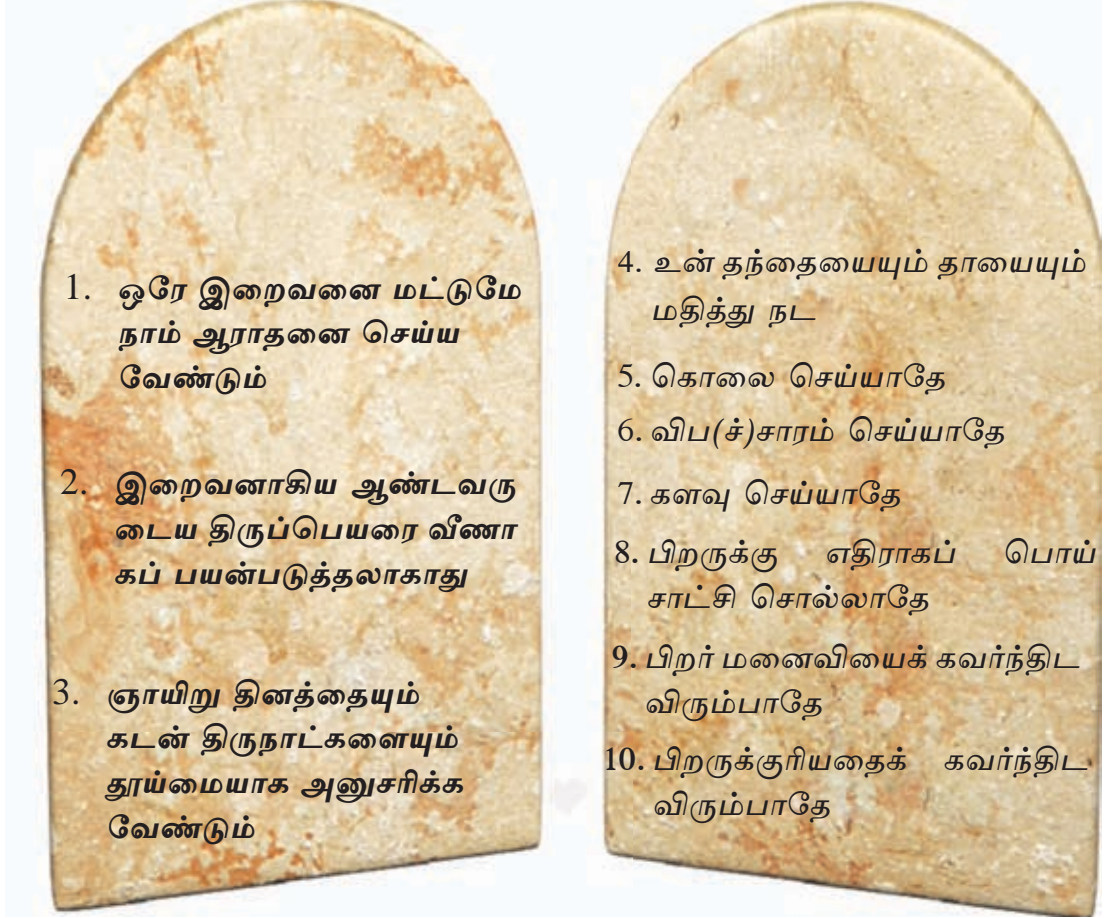 1. ஒரே இறைவனை மட்டுமே
நாம் ஆராதனை செய்ய
வேண்டும்
2. இறைவனாகிய ஆண்டவரு
டைய திருப்பெயரை வீணா
கப் பயன்படுத்தலாகாது
3. ஞாயிறு தினத்தையும்
கடன் திருநாட்களையும்
தூய்மையாக அனுசரிக்க
வேண்டும்
4. உன் தந்தையையும் தாயையும்
மதித்து நட
5. கொலை செய்யாதே
6. விப(ச்)சாரம் செய்யாதே
7. களவு செய்யாதே
8. பிறருக்கு எதிராகப் பொய்
சாட்சி சொல்லாதே
9. பிறர் மனைவியைக் கவர்ந்திட
விரும்பாதே
10. பிறருக்குரியதைக் கவர்ந்திட
விரும்பாதே